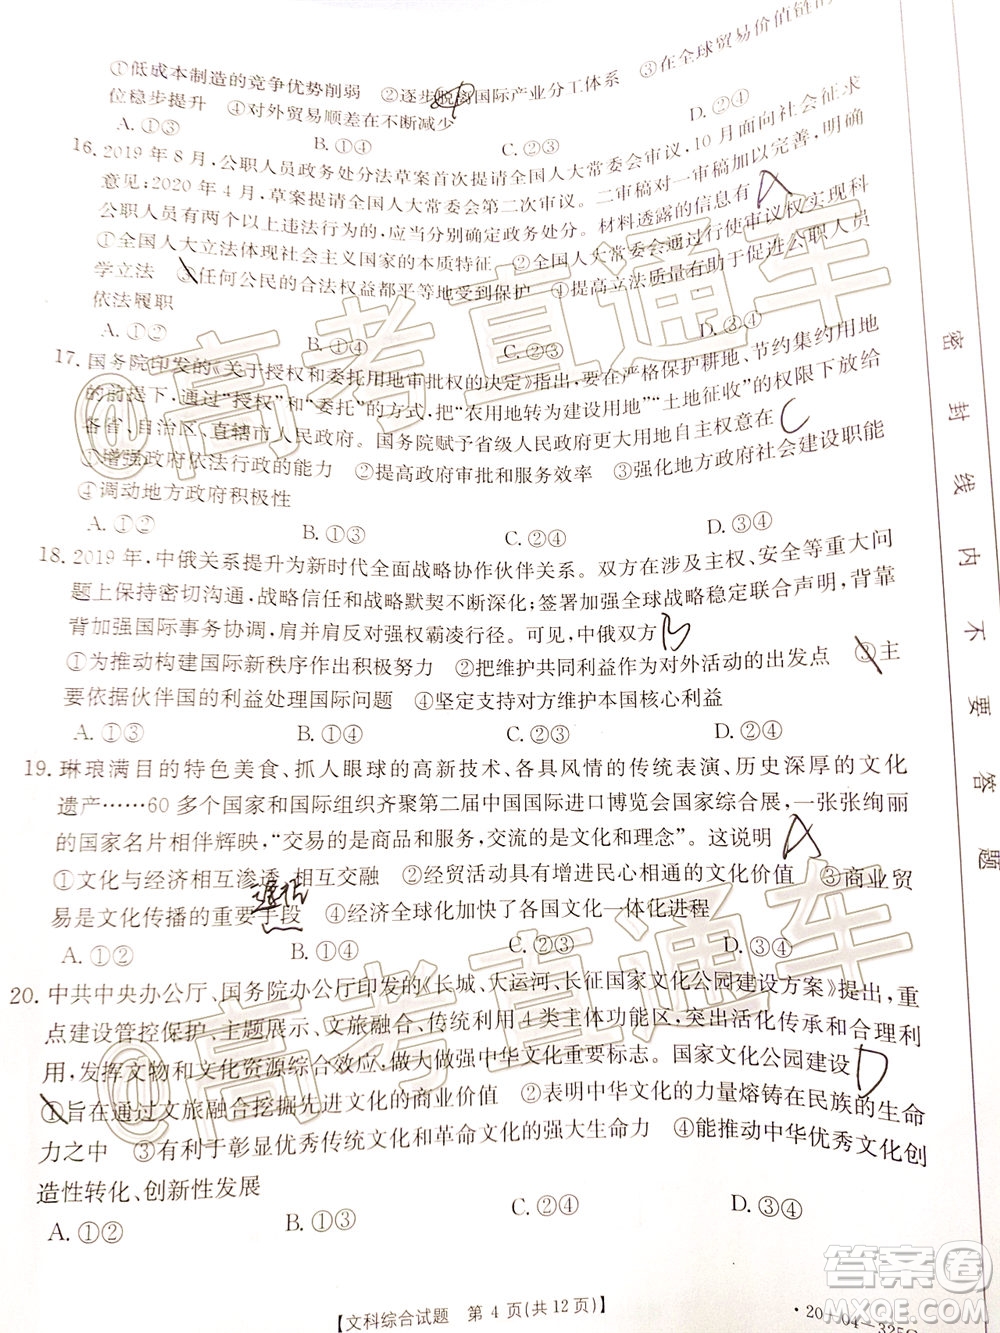 ①低成本制造的竞争优势削弱 ②逐步脱离国际产业分工体系 ③在全球贸易价值链的
位稳步提升 ④对外贸易顺差在不断减少
A.①③ B.①④ C.②③ D.②④
16. 2019年8月,公职人员政务处分法草案首次提请全国人大常委会审议,10月面向社会征求
意见;2020年4月,草案提请全国人大常委会第二次审议。二审稿对一审稿加以完善,明确
公职人员有两个以上违法行为的,应当分别确定政务处分。材料透露的信息有 A
①全国人大立法体现社会主义国家的本质特征 ②全国人大常委会通过行使审议权实现科
学立法 ③任何公民的合法权益都平等地受到保护 ④提高立法质量有助于促进公职人员
依法履职
A.①② B.①④ C.②③ D.③④
17. 国务院印发的《关于授权和委托用地审批权的决定》指出,要在严格保护耕地、节约集约用地
的前提下,通过“授权”和“委托”的方式,把“农用地转为建设用地”“土地征收”的权限下放给
各省、自治区、直辖市人民政府。国务院赋予省级人民政府更大用地自主权意在 C
①增强政府依法行政的能力 ②提高政府审批和服务效率 ③强化地方政府社会建设职能
④调动地方政府积极性
A.①② B.①③ C.②④ D.③④
18. 2019年,中俄关系提升为新时代全面战略协作伙伴关系。双方在涉及主权、安全等重大问
题上保持密切沟通,战略信任和战略默契不断深化;签署加强全球战略稳定联合声明,背靠
背加强国际事务协调,肩并肩反对强权霸凌行径。可见,中俄双方 B
①为推动构建国际新秩序作出积极努力 ②把维护共同利益作为对外活动的出发点 ③主
要依据伙伴国的利益处理国际问题 ④坚定支持对方维护本国核心利益
A.①③ B.①④ C.②③ D.②④
19. 琳琅满目的特色美食、抓人眼球的高新技术、各具风情的传统表演、历史深厚的文化
遗产……60多个国家和国际组织齐聚第二届中国国际进口博览会国家综合展,一张张绚丽
的国家名片相伴辉映,“交易的是商品和服务,交流的是文化和理念”。这说明 A
①文化与经济相互渗透、相互交融 ②经贸活动具有增进民心相通的文化价值 ③商业贸
易是文化传播的重要手段 ④经济全球化加快了各国文化一体化进程
A.①② B.①④ C.②③ D.③④
20. 中共中央办公厅、国务院办公厅印发的《长城、大运河、长征国家文化公园建设方案》提出,重
点建设管控保护、主题展示、文旅融合、传统利用4类主体功能区,突出活化传承和合理利
用,发挥文物和文化资源综合效应,做大做强中华文化重要标志。国家文化公园建设 D
①旨在通过文旅融合挖掘先进文化的商业价值 ②表明中华文化的力量熔铸在民族的生命
力之中 ③有利于彰显优秀传统文化和革命文化的强大生命力 ④能推动中华优秀文化创
造性转化、创新性发展
A.①② B.①③ C.②④ D.③④
【文科综合试题 第4页(共12页)】
密封线内不要答题
@高考直通车
@高考直通车
答案圈
MXQE.COM